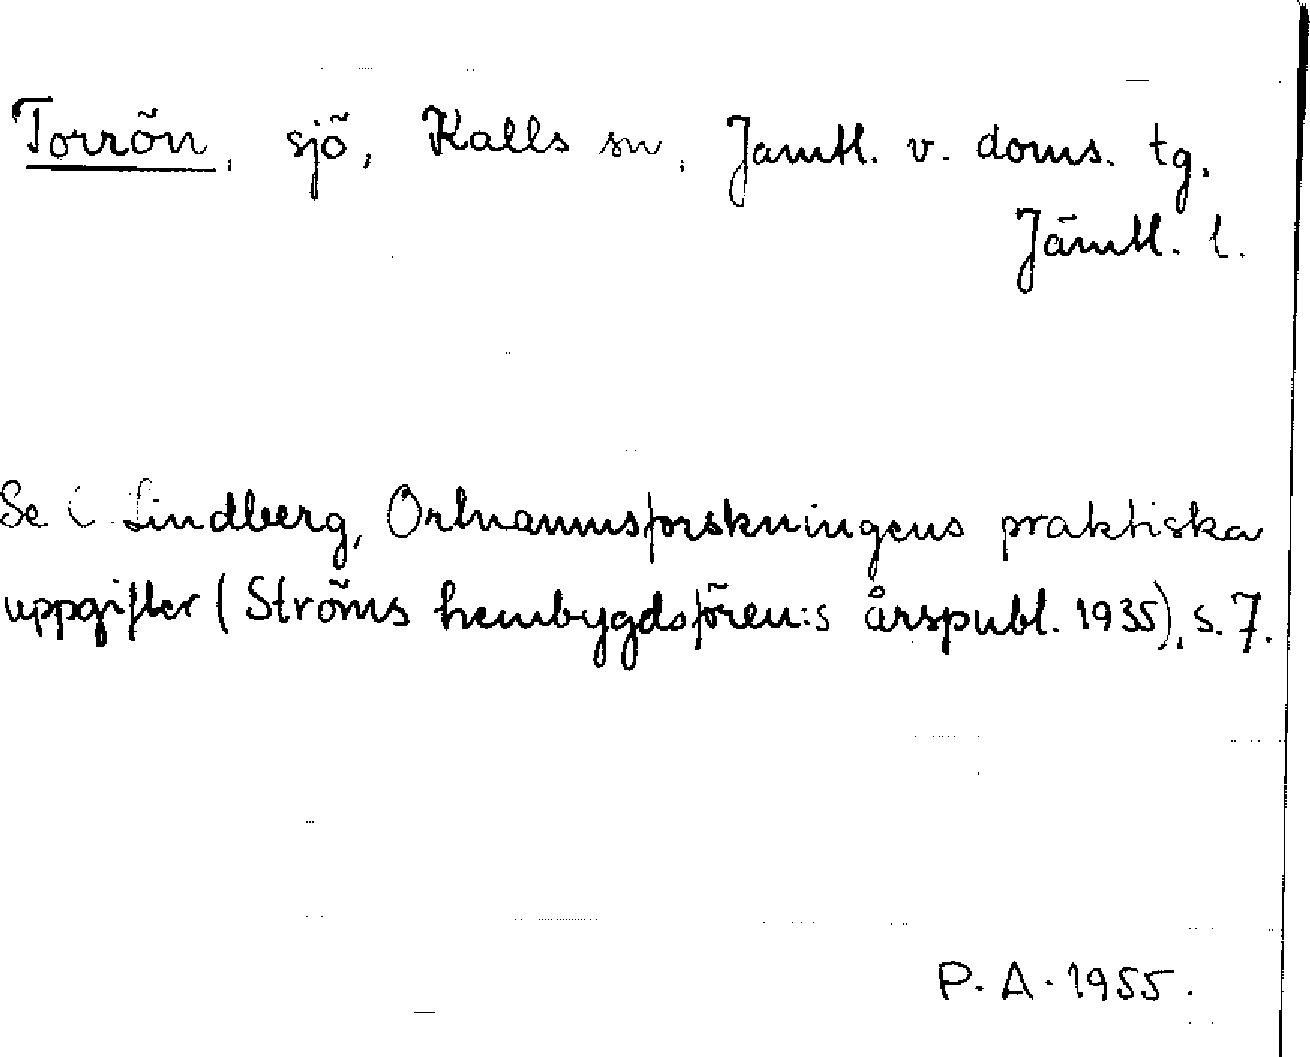 Torrön, sjö, Kalls sn, Jämtl. v. doms. tg.
Jämtl. l.
Se C. Lindberg, Ortnamnsforskningens praktiska
uppgifter (Ströms hembygdsfören:s årspubl. 1935), s. 7.
P. A. 1955.